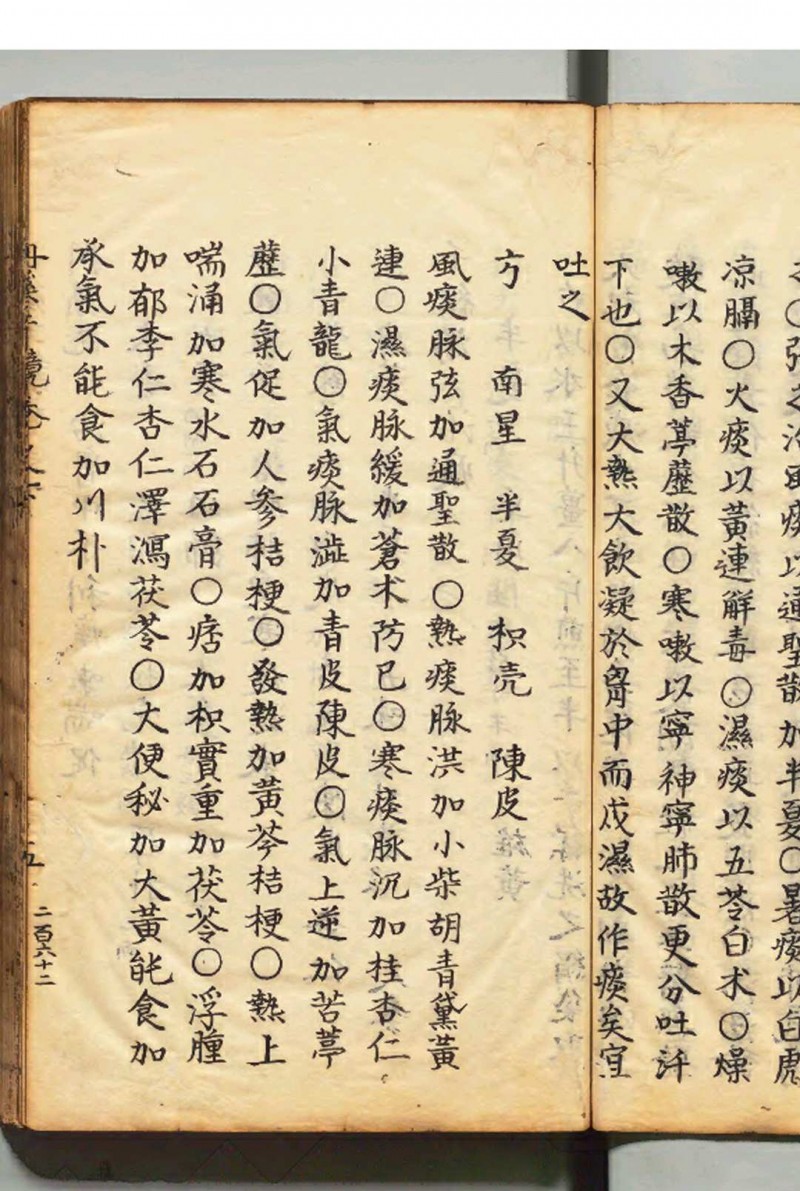 〇強之治風痰以通聖散加半夏〇暑痰以白虎
凉膈〇火痰以黃連解毒〇濕痰以五苓白朮〇燥
嗽以木香葶藶散〇寒嗽以寧神寧肺散更分吐汗
下也〇又大熱大飲凝於胷中而成濕故作痰矣宜
吐之
方 南星 半夏 枳壳 陳皮
風痰脉弦加通聖散〇熱痰脉洪加小柴胡青黛黃
連〇濕痰脉緩加蒼朮防己〇寒痰脉沉加桂杏仁
小青龍〇氣痰脉澁加青皮陳皮〇氣上逆加苦葶
藶〇氣促加人參桔梗〇發熱加黃芩桔梗〇熱上
喘涌加寒水石石膏〇痞加枳實重加茯苓〇浮腫
加郁李仁杏仁澤瀉茯苓〇大便秘加大黃能食加
承氣不能食加川朴
五
二百六十二